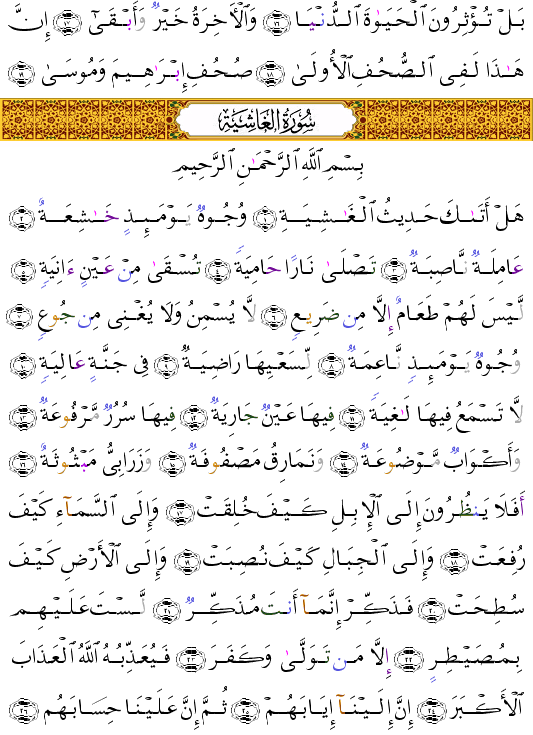 بَلْ تُؤْثِرُونَ ٱلْحَيَوٰةَ ٱلدُّنْيَا ﴿١٦﴾ وَٱلْأَخِرَةُ خَيْرٌ وَأَبْقَىٰٓ ﴿١٧﴾ إِنَّ
هَٰذَا لَفِى ٱلصُّحُفِ ٱلْأُولَىٰ ﴿١٨﴾ صُحُفِ إِبْرَٰهِيمَ وَمُوسَىٰ ﴿١٩﴾
سُورَةُ الغَاشِيَةِ
بِسْمِ ٱللَّهِ ٱلرَّحْمَٰنِ ٱلرَّحِيمِ
هَلْ أَتَىٰكَ حَدِيثُ ٱلْغَٰشِيَةِ ﴿١﴾ وُجُوهٌ يَوْمَئِذٍ خَٰشِعَةٌ ﴿٢﴾
عَامِلَةٌ نَّاصِبَةٌ ﴿٣﴾ تَصْلَىٰ نَارًا حَامِيَةً ﴿٤﴾ تُسْقَىٰ مِنْ عَيْنٍ ءَانِيَةٍ ﴿٥﴾
لَّيْسَ لَهُمْ طَعَامٌ إِلَّا مِن ضَرِيعٍ ﴿٦﴾ لَّا يُسْمِنُ وَلَا يُغْنِى مِن جُوعٍ ﴿٧﴾
وُجُوهٌ يَوْمَئِذٍ نَّاعِمَةٌ ﴿٨﴾ لِّسَعْيِهَا رَاضِيَةٌ ﴿٩﴾ فِى جَنَّةٍ عَالِيَةٍ ﴿١٠﴾
لَّا تَسْمَعُ فِيهَا لَٰغِيَةً ﴿١١﴾ فِيهَا عَيْنٌ جَارِيَةٌ ﴿١٢﴾ فِيهَا سُرُرٌ مَّرْفُوعَةٌ ﴿١٣﴾
وَأَكْوَابٌ مَّوْضُوعَةٌ ﴿١٤﴾ وَنَمَارِقُ مَصْفُوفَةٌ ﴿١٥﴾ وَزَرَابِىُّ مَبْثُوثَةٌ ﴿١٦﴾
أَفَلَا يَنظُرُونَ إِلَى ٱلْإِبِلِ كَيْفَ خُلِقَتْ ﴿١٧﴾ وَإِلَى ٱلسَّمَآءِ كَيْفَ
رُفِعَتْ ﴿١٨﴾ وَإِلَى ٱلْجِبَالِ كَيْفَ نُصِبَتْ ﴿١٩﴾ وَإِلَى ٱلْأَرْضِ كَيْفَ
سُطِحَتْ ﴿٢٠﴾ فَذَكِّرْ إِنَّمَآ أَنتَ مُذَكِّرٌ ﴿٢١﴾ لَّسْتَ عَلَيْهِم
بِمُصَيْطِرٍ ﴿٢٢﴾ إِلَّا مَن تَوَلَّىٰ وَكَفَرَ ﴿٢٣﴾ فَيُعَذِّبُهُ ٱللَّهُ ٱلْعَذَابَ
ٱلْأَكْبَرَ ﴿٢٤﴾ إِنَّ إِلَيْنَآ إِيَابَهُمْ ﴿٢٥﴾ ثُمَّ إِنَّ عَلَيْنَا حِسَابَهُم ﴿٢٦﴾